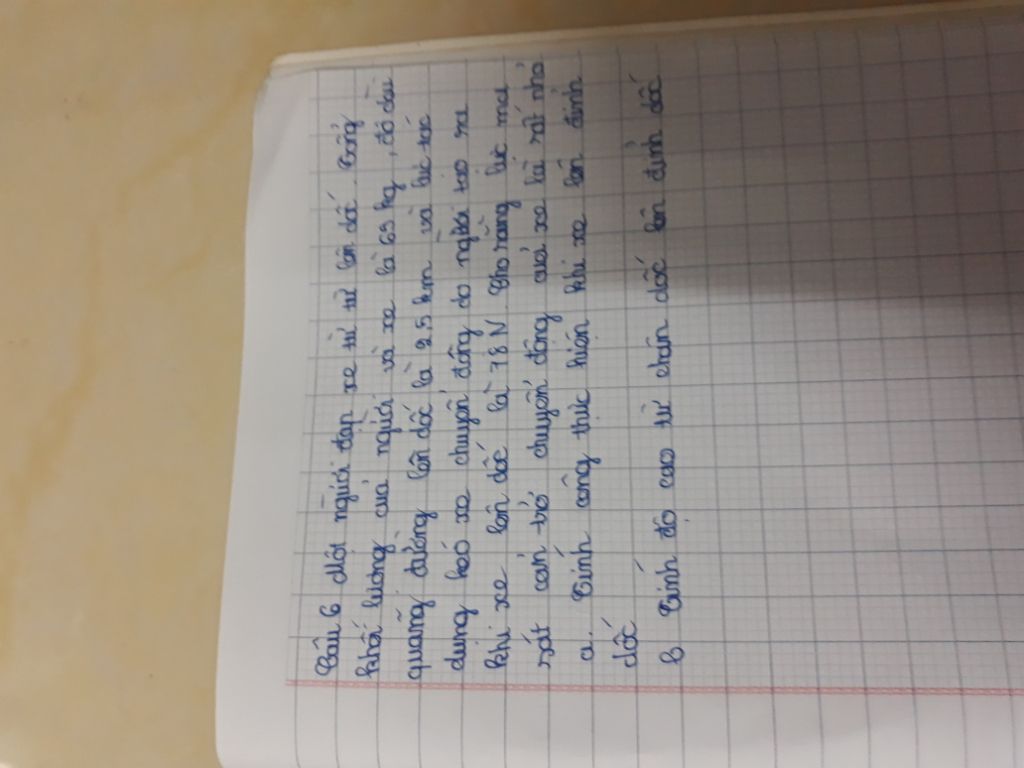 Câu 6 Một người đạp xe từ từ lên dốc. Tổng
khối lượng của người và xe là 65 kg, độ dài
quãng đường lên dốc là 2.5 km và lực tác
dụng kéo xe chuyển động do người tạo ra
khi xe lên dốc là 78 N. Cho rằng lực ma
sát cản trở chuyển động của xe là rất nhỏ
a. Tính công thực hiện khi xe lên đỉnh
dốc
b Tính độ cao từ chân dốc lên đỉnh dốc